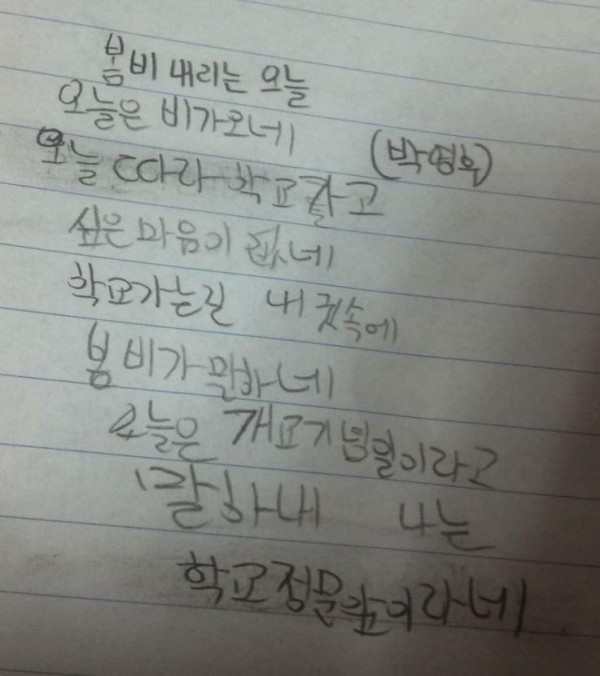 봄비 내리는 오늘
오늘은 비가오네
(박영후)
오늘따라 학교가고
싶은 마음이 없네
학교가는길 내 귓속에
봄비가 말하네
오늘은 개교기념일이라고
말하네 나는
학교정문앞이라네